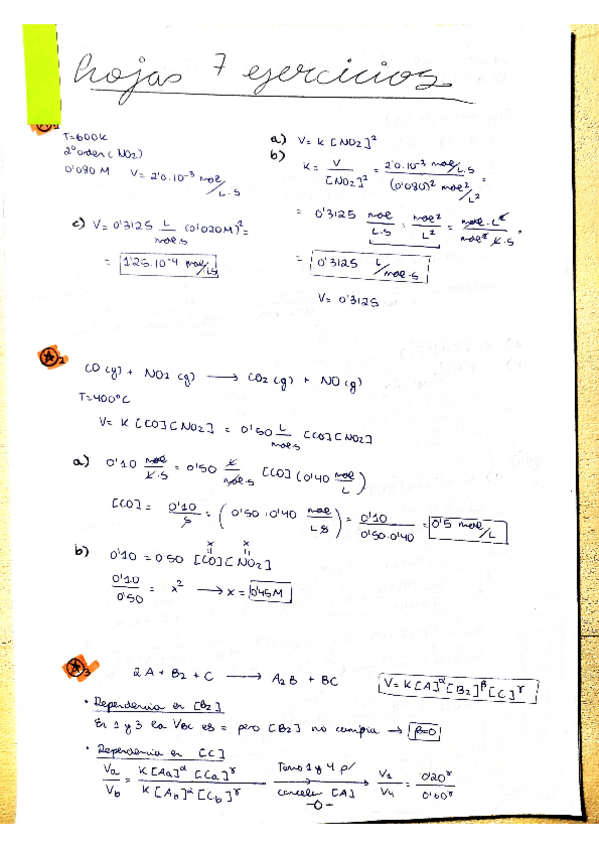 hojas 7 ejercicios
T=600K
2º orden (NO2)
0'080 M V= 2'0.10⁻³ mol/L.s
a) V= K [NO2]²
b) K= V/[NO2]² = 2'0.10⁻³ mol/L.s / (0'080)² mol²/L² =
= 0'3125 mol/L.s : mol²/L² = mol.L²/mol².L.s =
= 0'3125 L/mol.s
V= 0'3125
c) V= 0'3125 L/mol.s (0'020M)² =
= 1'25.10⁻⁴ mol/Ls
2
CO(g) + NO2(g) → CO2(g) + NO(g)
T=400ºC
V= K [CO][NO2] = 0'50 L/mol.s [CO][NO2]
a) 0'10 mol/L.s = 0'50 L/mol.s [CO] (0'40 mol/L)
[CO] = 0'10/s = (0'50.0'40 mol/L s) = 0'10/0'50.0'40 = 0'5 mol/L
x x
b) 0'10 = 0'50 [CO][NO2]
0'10/0'50 = x² → x = 0'45M
3
2A + B2 + C → A2B + BC V= K[A]^α [B2]^β [C]^γ
• Dependencia en [B2]
En 1 y 3 la VBC es = pero [B2] no cambia → β=0
• Dependencia en [C]
Va/Vb = K[Aa]^α [Ca]^γ / K[Ab]^α [Cb]^γ Tomo 1 y 4 p/ cancelar [A] → V1/V4 = 0'20^γ/0'60^γ
-0-